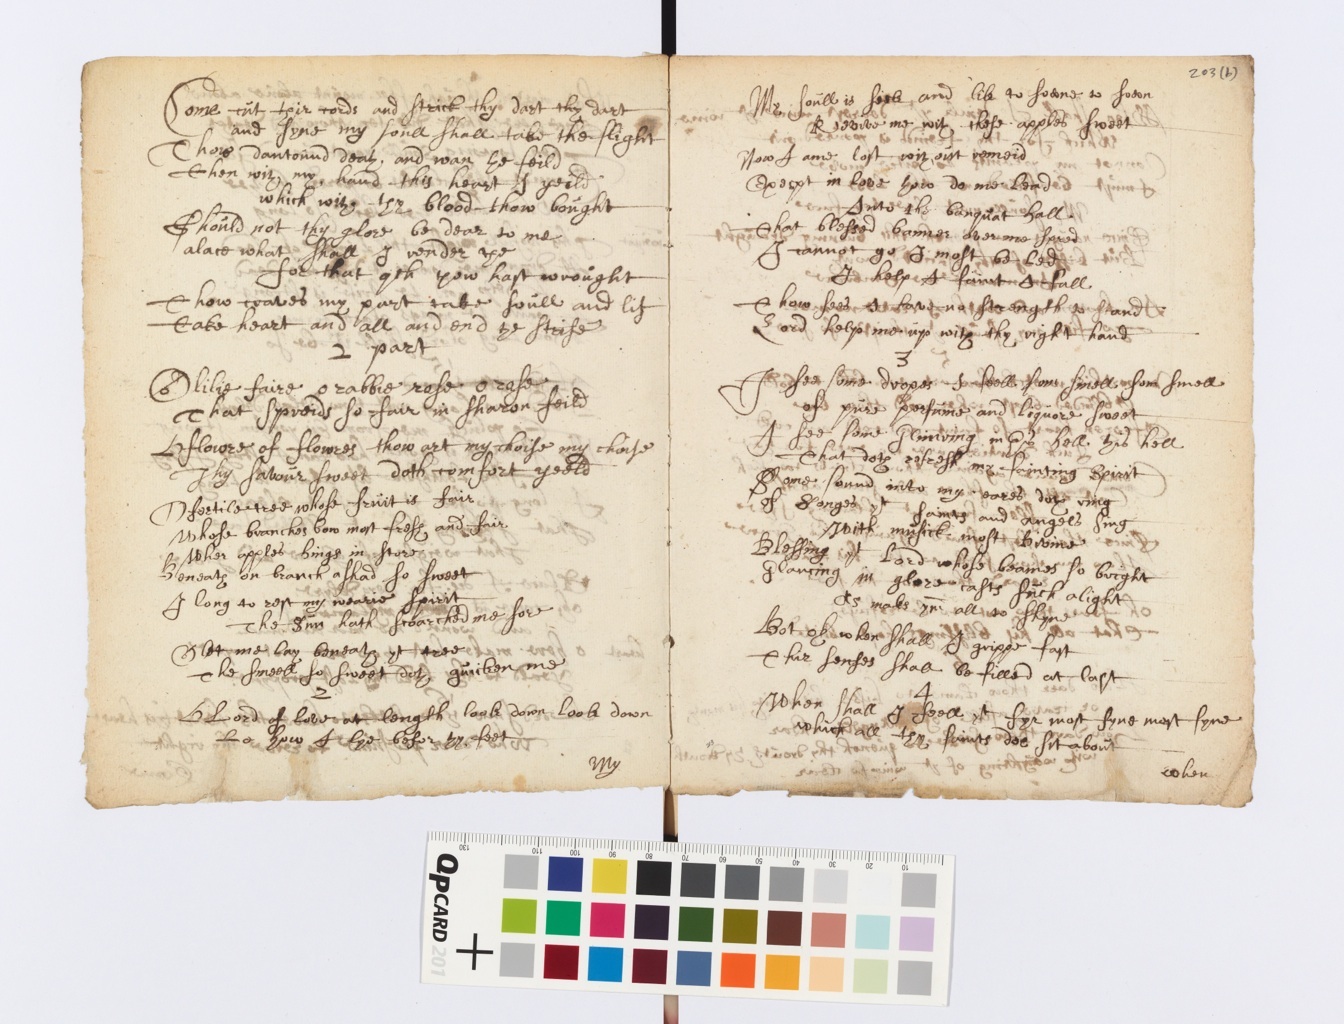 Come cut thir cords and strick thy dart thy dart
and syne my soull shall take the flight
Thow dantound death and wan the feild
then with my hand this heart I yeild
which with thy blood thow bought
Should not thy glore be dear to me
alace what shall I render the
for that qch thow hast wrought
Thow craves my part take soull and lif
take heart and all and end the strife
2 part
O lilie faire o rubbie rose o rose
That spreids so fair in sharon feild
O flowre of flowres thow art my choise my choise
Thy savour sweet doth comfort yeeld
O fertile tree whose fruit is fair
Whose branches bow most fresh and fair
Wher apples hings in store
Beneath on branch a shad so sweet
I long to rest my wearie spirit
The Sun hath scoarched me sore
Let me lay beneath yt tree
The smeell so sweet doth quicken me
2
O Lord of love at length look down look down
Lo how I lye befor thy feet
My
203(b)
My soull is seik and lik to sowne to sown
Revive me with these apples sweet
Now I ame lost with out remeid
Except in love thow do me lead
Into the banquat hall
That blessed banner over me spred
I cannot go I most be led
I help I faint I fall
Thow sees I have no strength to stand
Lord help me up with thy right hand
3
I see some dropes I feell som smell som smell
of pure perfume and liquore sweet
I see some glimring in this hell this hell
That doth refresh my fainting Spirit
Some sound into my eares doth ring
of Songes yt saints and angels sing
With musick most Divine
Blessing yt Lord whose beames so bright
glancing in glore casts such a light
As maks ym all to shyne
Bot oh when shall I grippe fast
Thir senses shall be filled at last
4
When shall I feell yt fyr most fyne most fyne
which all thy saints doe sit about
when
QPCARD 201
130 110 100 90 80 70 60 50 40 30 20 10